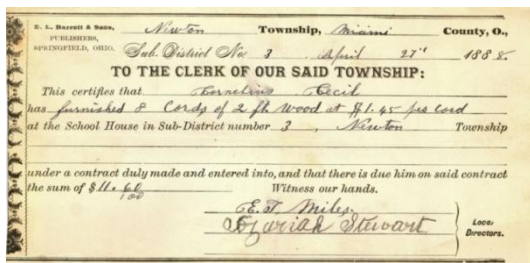 E. L. Barrett & Sons,
PUBLISHERS,
SPRINGFIELD, OHIO.
Newton Township, Miami County, O.,
Sub. District No 3 April 27" 1888.
TO THE CLERK OF OUR SAID TOWNSHIP:
This certifies that Cornelius Cecil
has furnished 8 Cords of 2 ft Wood at $1.45 per cord
at the School House in Sub-District number 3, Newton Township
under a contract duly made and entered into, and that there is due him on said contract
the sum of $11. 60/100 Witness our hands.
E. T. Miles
Azariah Stewart
Local
Directors.